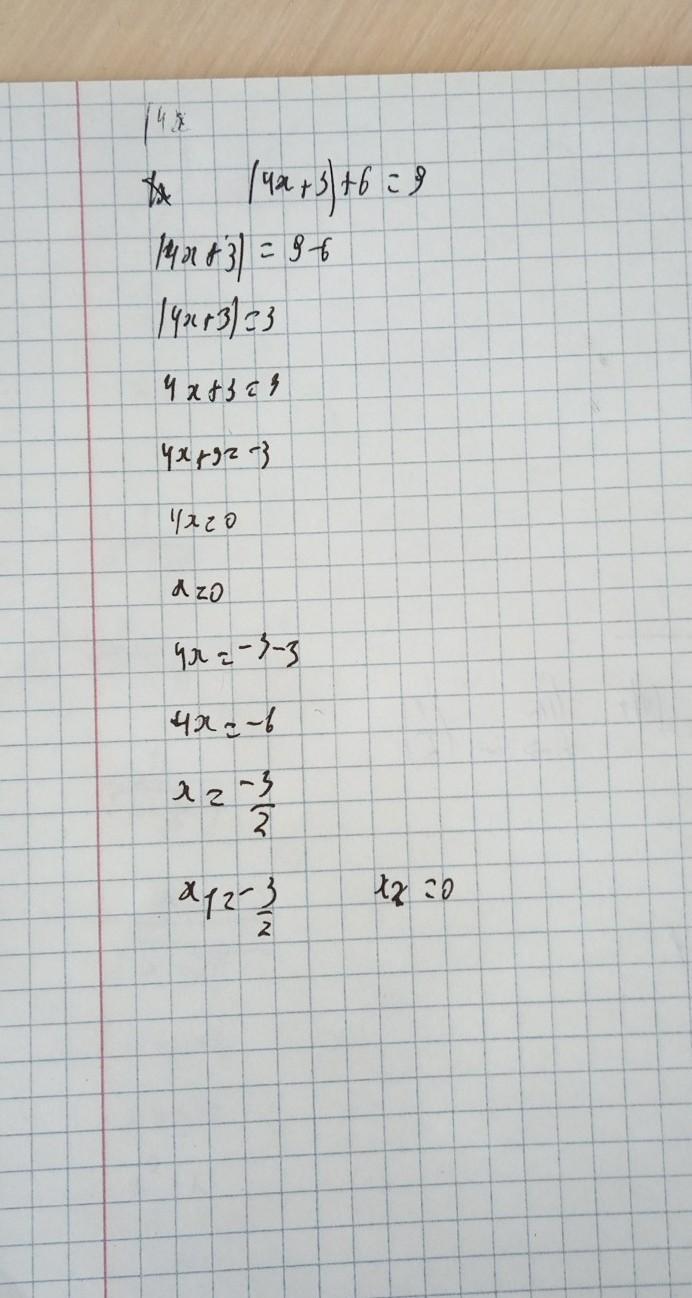 |4x
|4x+3|+6=9
|4x+3|=9-6
|4x+3|=3
4x+3=3
4x+3=-3
4x=0
x=0
4x=-3-3
4x=-6
x=-3/2
x1=-3/2 x2=0